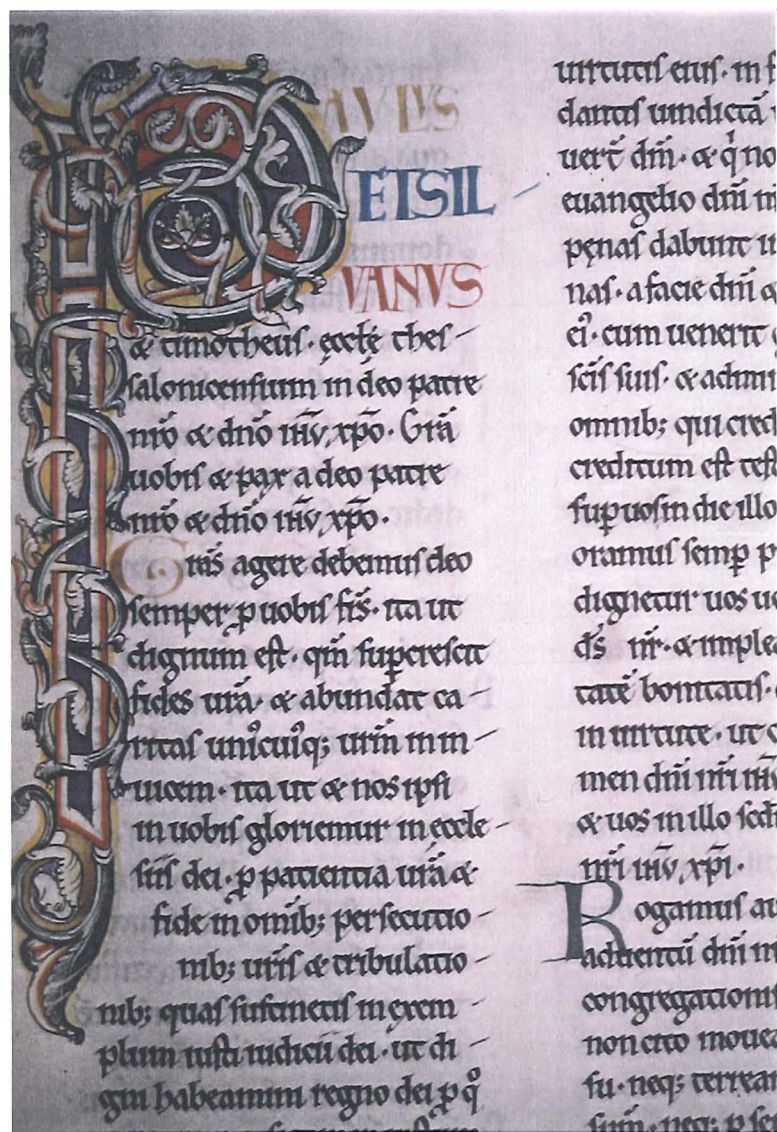 PAVLVS
ET SIL
VANVS
& timotheus. ęcclę thes-
salonicensium in deo patre
nr̄o & dn̄o ih̄u xp̄o. Grā
uobis & pax a deo patre
nr̄o & dn̄o ih̄u xp̄o.
Grās agere debemus deo
semper p̱ uobis fr̄s. ita ut
dignum est. qm̄ sup̱crescit
fides ur̄a. & abundat ca-
ritas uni᷒cui᷒q; ur̄m in in-
uicem. ita ut & nos ipsi
in uobis gloriemur in ęccle-
siis dei. p̱ patientia ur̄a &
fide in omib; persecutio-
nib; ur̄is & tribulatio-
nib; quas sustinetis in exem-
plum iusti iudicii dei. ut di-
gni habeamini regno dei p̱ qͦ
uirtutis eius. in f
dantis uindictā
uer̄t dm̄. & qi no
euangelio dn̄i n
pęnas dabunt in
nas. a facie dn̄i &
ei᷒. cum uenerit
sc̄is suis. & admi
omnib; qui cred
creditum est test
sup̱ uos in die illo
oramus semp̱ p
dignetur uos uo
d̄s nr̄. & implea
tatē bonitatis.
in uirtute. ut c
men dn̄i nr̄i ih̄u
& uos in illo scdm
nr̄i ih̄u xp̄i.
Rogamus au
aduentū dn̄i n
congregationis
non cito mouea
su. neq; terrean
sum. neq; p̱ se